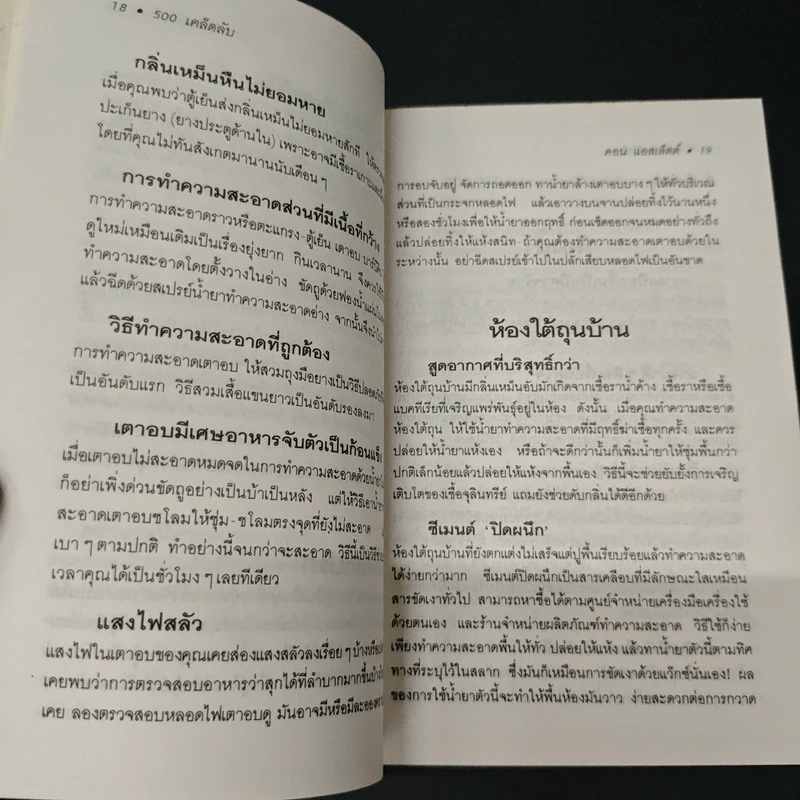 18 • 500 เคล็ดลับ
กลิ่นเหม็นหืนไม่ยอมหาย
เมื่อคุณพบว่าตู้เย็นส่งกลิ่นเหม็นไม่ยอมหายสักที ให้
ปะเก็นยาง (ยางประตูด้านใน) เพราะอาจมีเชื้อราเกาะ
โดยที่คุณไม่ทันสังเกตมานานนับเดือนๆ
การทำความสะอาดส่วนที่มีเนื้อที่กว้าง
การทำความสะอาดราวหรือตะแกรง-ตู้เย็น เตาอบ
ดูใหม่เหมือนเดิมเป็นเรื่องยุ่งยาก กินเวลานาน
ทำความสะอาดโดยตั้งวางในอ่าง ขัดถูด้วยฟองน้ำ
แล้วฉีดด้วยสเปรย์น้ำยาทำความสะอาดอ่าง จากนั้นจึง
วิธีทำความสะอาดที่ถูกต้อง
การทำความสะอาดเตาอบ ให้สวมถุงมือยางเป็นวิธีปลอดภัย
เป็นอันดับแรก วิธีสวมเสื้อแขนยาวเป็นอันดับรองลงมา
เตาอบมีเศษอาหารจับตัวเป็นก้อนแข็ง
เมื่อเตาอบไม่สะอาดหมดจดในการทำความสะอาดด้วยน้ำยา
ก็อย่าเพิ่งด่วนขัดถูอย่างเป็นบ้าเป็นหลัง แต่ให้วิธีเอาน้ำยา
สะอาดเตาอบชโลมให้ชุ่ม-ชโลมตรงจุดที่ยังไม่สะอาด
เบาๆ ตามปกติ ทำอย่างนี้จนกว่าจะสะอาด วิธีนี้เป็นวิธี
เวลาคุณได้เป็นชั่วโมงๆ เลยทีเดียว
แสงไฟสลัว
แสงไฟในเตาอบของคุณเคยส่องแสงสลัวลงเรื่อยๆ บ้างหรือ
เคยพบว่าการตรวจสอบอาหารว่าสุกได้ที่ลำบากมากขึ้น
เคย ลองตรวจสอบหลอดไฟเตาอบดู มันอาจมีหรือมีละออง
ดอน แอสเล็ตต์ • 19
การอบจับอยู่ จัดการถอดออก ทาน้ำยาล้างเตาอบบางๆ ให้ทั่วบริเวณ
ส่วนที่เป็นกระจกหลอดไฟ แล้วเอาวางบนจานปล่อยทิ้งไว้นานหนึ่ง
หรือสองชั่วโมงเพื่อให้น้ำยาออกฤทธิ์ ก่อนเช็ดออกจนหมดอย่างทั่วถึง
แล้วปล่อยทิ้งให้แห้งสนิท ถ้าคุณต้องทำความสะอาดเตาอบด้วยใน
ระหว่างนั้น อย่าฉีดสเปรย์เข้าไปในปลั๊กเสียบหลอดไฟเป็นอันขาด
ห้องใต้ถุนบ้าน
สูดอากาศที่บริสุทธิ์กว่า
ห้องใต้ถุนบ้านมีกลิ่นเหม็นอับมักเกิดจากเชื้อราน้ำค้าง เชื้อราหรือเชื้อ
แบคทีเรียที่เจริญแพร่พันธุ์อยู่ในห้อง ดังนั้น เมื่อคุณทำความสะอาด
ห้องใต้ถุน ให้ใช้น้ำยาทำความสะอาดที่มีฤทธิ์ฆ่าเชื้อทุกครั้ง และควร
ปล่อยให้น้ำยาแห้งเอง หรือถ้าจะดีกว่านั้นก็เพิ่มน้ำยาให้ชุ่มพื้นกว่า
ปกติเล็กน้อยแล้วปล่อยให้แห้งจากพื้นเอง วิธีนี้จะช่วยยับยั้งการเจริญ
เติบโตของเชื้อจุลินทรีย์ แถมยังช่วยดับกลิ่นได้ดีอีกด้วย
ซีเมนต์ ‘ปิดผนึก’
ห้องใต้ถุนบ้านที่ยังตกแต่งไม่เสร็จแต่ปูพื้นเรียบร้อยแล้วทำความสะอาด
ได้ง่ายกว่ามาก ซีเมนต์ปิดผนึกเป็นสารเคลือบที่มีลักษณะใสเหมือน
สารขัดเงาทั่วไป สามารถหาซื้อได้ตามศูนย์จำหน่ายเครื่องมือเครื่องใช้
ด้วยตนเอง และร้านจำหน่ายผลิตภัณฑ์ทำความสะอาด วิธีใช้ก็ง่าย
เพียงทำความสะอาดพื้นให้ทั่ว ปล่อยให้แห้ง แล้วทาน้ำยาตัวนี้ตามทิศ
ทางที่ระบุไว้ในสลาก ซึ่งมันก็เหมือนการขัดเงาด้วยแว๊กซ์นั่นเอง! ผล
ของการใช้น้ำยาตัวนี้จะทำให้พื้นห้องมันวาว ง่ายสะดวกต่อการกวาด